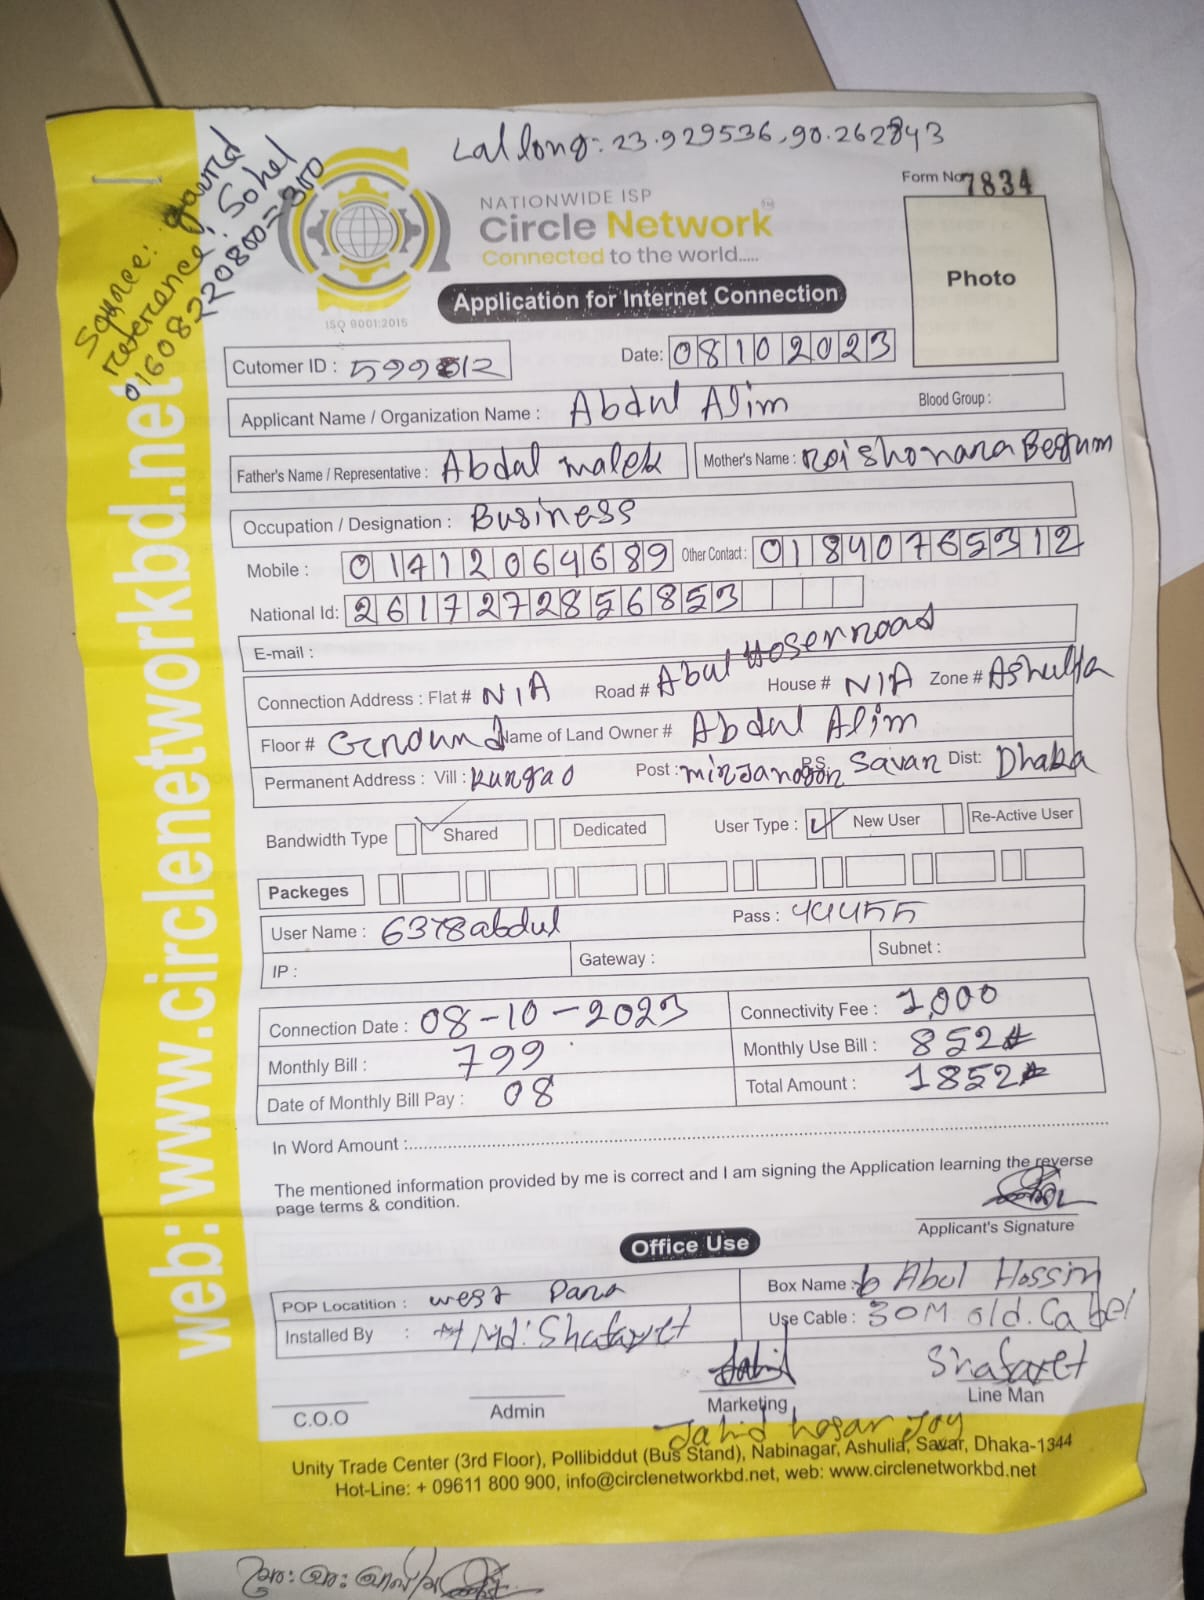 Lat long: 23.929536, 90.262843
Source:
reference: Sohel
01608220800=300
Form No 7834
NATIONWIDE ISP
Circle Network
Connected to the world.....
ISO 9001:2015
Photo
Application for Internet Connection
Cutomer ID : 599812
Date: 08102023
Applicant Name / Organization Name : Abdul Alim
Blood Group :
Father's Name / Representative : Abdal malek
Mother's Name : roishonara Begum
Occupation / Designation : Business
Mobile : 01712064689 Other Contact : 01840765312
National Id: 2617272856853
E-mail :
Connection Address : Flat # N/A Road # Abul Hosen road House # N/A Zone # Ashulia
Floor # Ground Name of Land Owner # Abdul Alim
Permanent Address : Vill : Kungao Post : mirzanogor P.S. Savar Dist: Dhaka
Bandwidth Type Shared Dedicated User Type : New User Re-Active User
Packeges
User Name : 6378abdul Pass : 44455
IP : Gateway : Subnet :
Connection Date : 08-10-2023 Connectivity Fee : 1,000
Monthly Bill : 799 Monthly Use Bill : 852
Date of Monthly Bill Pay : 08 Total Amount : 1852
In Word Amount :
The mentioned information provided by me is correct and I am signing the Application learning the reverse
page terms & condition.
Applicant's Signature
Office Use
POP Locatition : west Para Box Name : Abul Hossin
Installed By : Md: Shafayet Use Cable : 30M old. Cabel
Shafayet
C.O.O Admin Marketing Line Man
Jahid hosar Joy
Unity Trade Center (3rd Floor), Pollibiddut (Bus Stand), Nabinagar, Ashulia, Savar, Dhaka-1344
Hot-Line: + 09611 800 900, info@circlenetworkbd.net, web: www.circlenetworkbd.net
web: www.circlenetworkbd.net